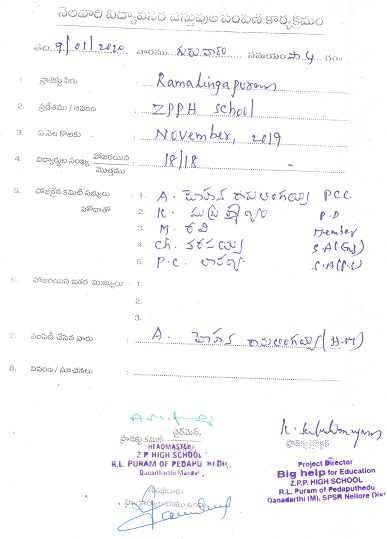 నెలవారి విద్యావసర వస్తువుల పంపిణీ కార్యక్రమం
తేది 9/01/2020 వారము గురువారం సమయం సా.4 గం.
1. ప్రాజెక్టు పేరు Ramalingapuram
2. ప్రదేశము / ఆవరణ ZPPH School
3. ఏ నెల కొఱకు November, 2019
4. విద్యార్థుల సంఖ్య హాజరయిన / మొత్తము 18/18
5. హాజరైన కమిటీ సభ్యులు 1. A. మోహన రామలింగయ్య PCC
హోదాతో 2. K. సుబ్రహ్మణ్యం P.D
3. M. రవి Member
4. Ch. నరసయ్య S.A(Eng)
5. P.C. లావణ్య S.A(P.S)
6. హాజరయిన ఇతర ముఖ్యులు 1.
2.
3.
7. పంపిణీ చేసిన వారు A. మోహన రామలింగయ్య (H.M)
8. వివరణ / సూచనలు
ఛైర్మెన్,
ప్రాజెక్టు కమిటీ
ప్రాజెక్టు డైరెక్టర్
HEADMASTER
Z.P HIGH SCHOOL
R.L. PURAM OF PEDAPU
Dagadarthi Mandal
K. Subrahmanyam
Project Director
Big help for Education
Z.P.P. HIGH SCHOOL
R.L. Puram of Pedaputhedu
Dagadarthi (M), SPSR Nellore Dist